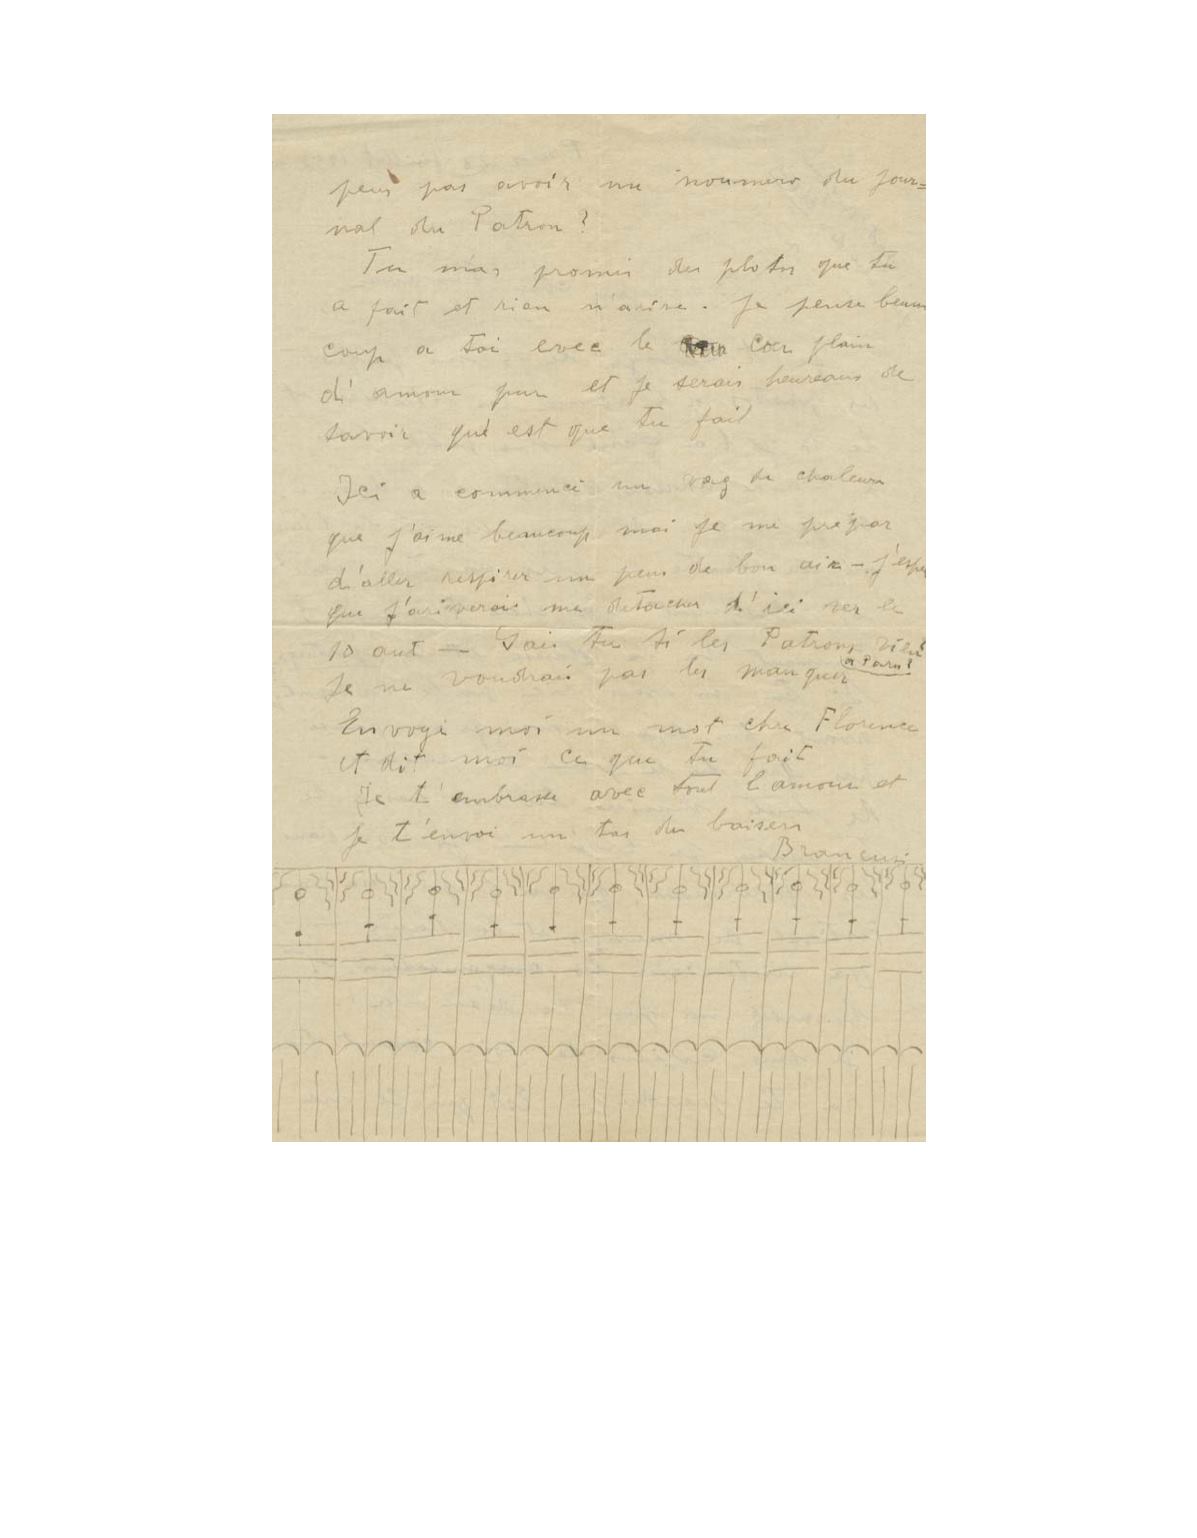 peus pas avoir un noumero du jour=
nal du Patron ?
Tu m'as promis des photos que tu
a fait et rien n'arive . Je pense beau
coup a toi evec le Cœr plain
d'amour pur et je serais heureaus de
savoir qué est que tu fait
Ici a commencé un vag de chaleur
que j'aime beaucoup moi je me prépar
d'aller respirer un peus de bon air – j'esper
que j'ariverai me detacher d'ici ver le
10 aut — Sais tu si les Patrons vien
a Paris?
Je ne voudrais pas les manquer
Envoye moi un mot chre Florence
et dit moi ce que tu fait
Je t'embrasse avec tout l'amour et
je t'envoi un tas du baisers
Brancusi